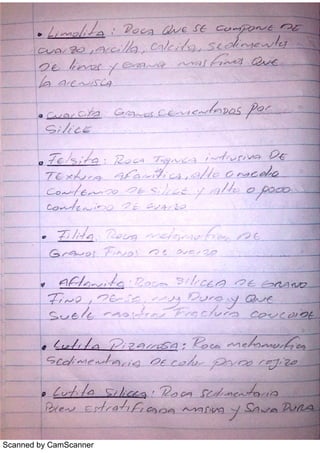 • Limolita: Roca que se compone de
cuarzo, arcilla, calcita, sedimentos
de limos y grano mas finos que
la arenisca
• cuarcita Granos cementados por
silice
• Felsita: Roca ignea intrusiva de
textura afanitica, alto o
contenido de silice y alto o poco
contenido de cuarzo
• Filita, Roca metamorfica, de
Granos finos de cuarzo
• Aftanita: Roca silicea de grano
Fino, muy Dura, y que
suele mostrar fractura concoide
• Lutita Pizarrosa: Roca metamorfica
sedimentaria de color pardo rojizo
• Lutita silicea: Roca sedimentaria
Bien estratificada masiva y sana Dura
Scanned by CamScanner